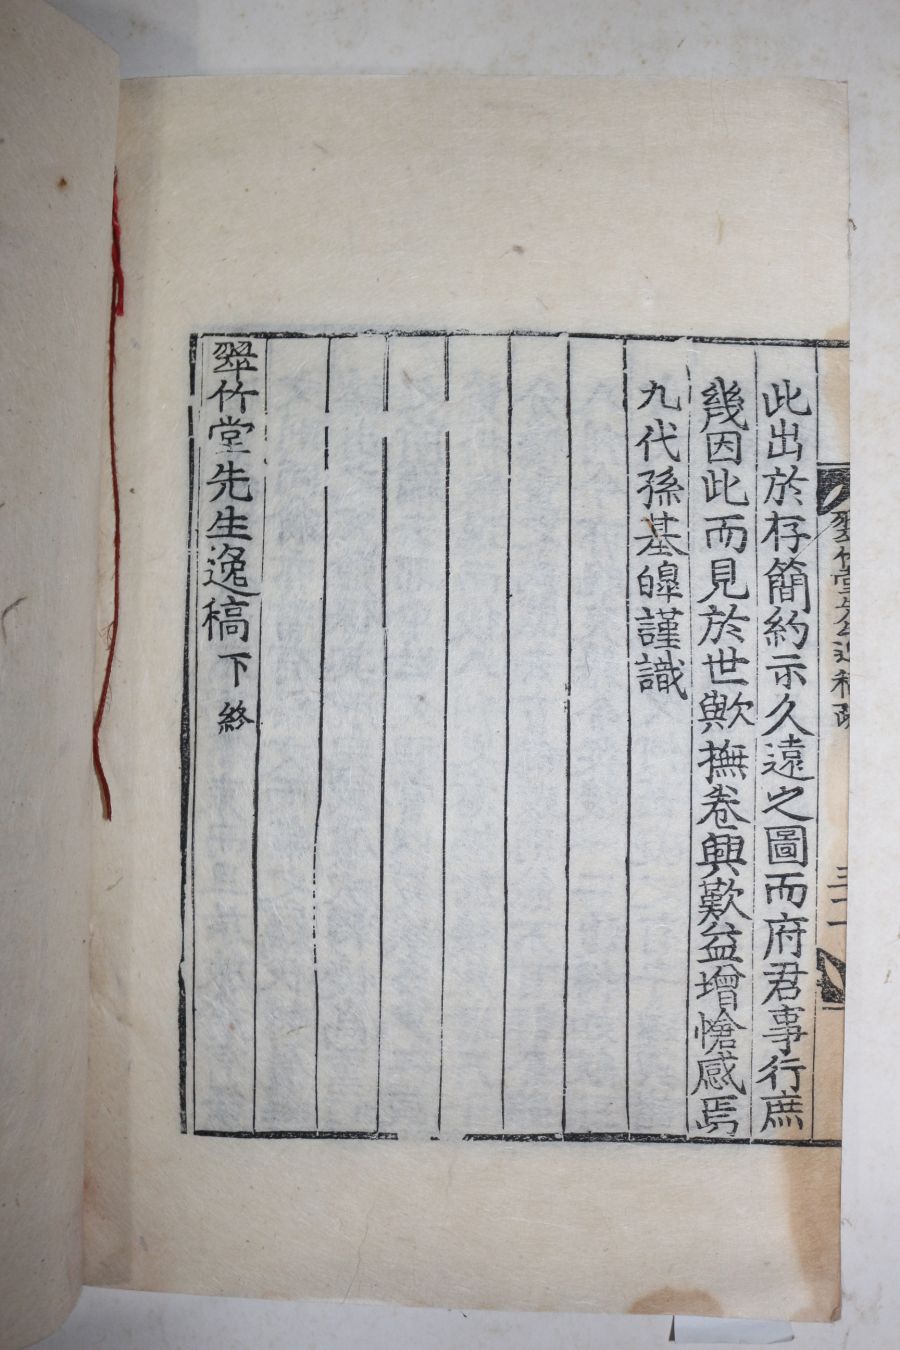 此出於存簡約示久遠之圖而府君事行庶
幾因此而見於世歟撫卷興歎益增愴感焉
九代孫基皥謹識
翠竹堂先生逸稿 下 終